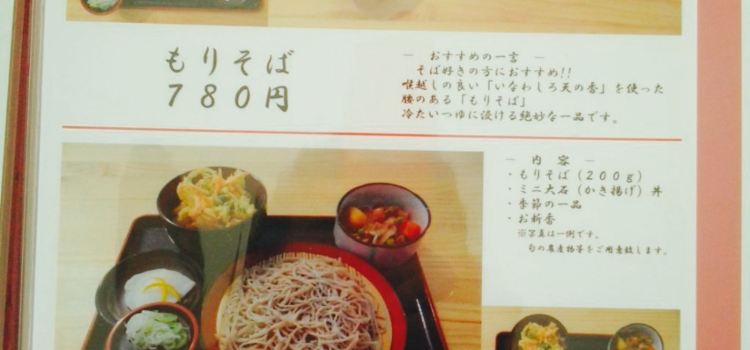 もりそば
７８０円
― おすすめの一言 ―
そば好きの方におすすめ!!
喉越しの良い「いなわしろ天の香」を使った
腰のある「もりそば」
冷たいつゆに浸ける絶妙な一品です。
― 内 容 ―
・もりそば（２００ｇ）
・ミニ大石（かき揚げ）丼
・季節の一品
・お新香
※写真は一例です。
旬の農産物等をご用意致します。